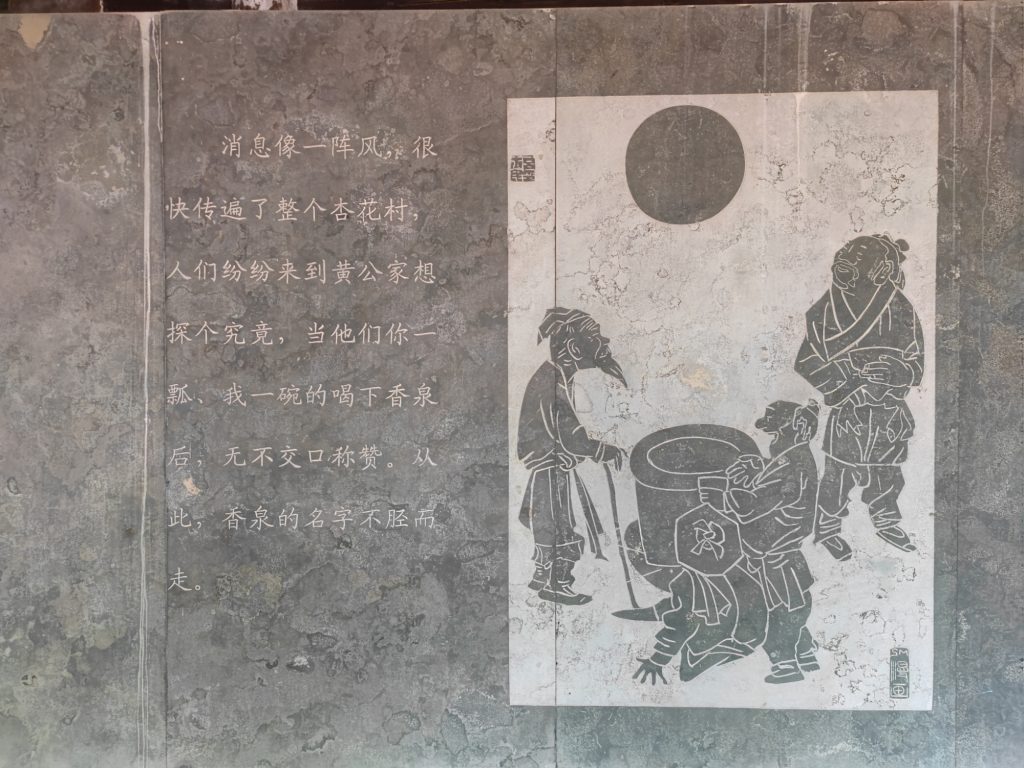 消息像一阵风，很
快传遍了整个杏花村，
人们纷纷来到黄公家想
探个究竟，当他们你一
瓢、我一碗的喝下香泉
后，无不交口称赞。从
此，香泉的名字不胫而
走。